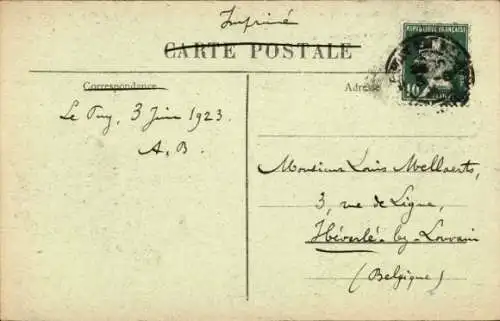 Imprimé
CARTE POSTALE
Correspondance
Adresse
REPUBLIQUE FRANÇAISE
10
Le Puy, 3 Juin 1923.
A. B.
Monsieur Louis Mellaerts,
3, rue de Ligne,
Héverlé-by-Louvain
(Belgique)